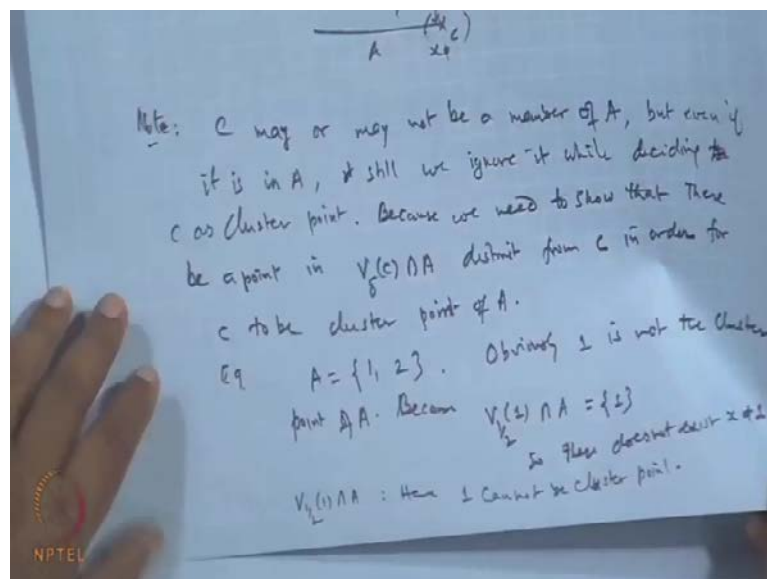 A
c
Note: C may or may not be a member of A, but even if
it is in A, still we ignore it while deciding
c as cluster point. Because we need to show that there
be a point in V_δ(c) ∩ A distinct from c in order for
c to be cluster point of A.
Eg A = {1, 2}. Obviously 1 is not the cluster
point of A. Because V_{1/2}(1) ∩ A = {1}
So there does not exist x ≠ 1
V_{1/2}(1) ∩ A : Hence 1 cannot be cluster point.
NPTEL